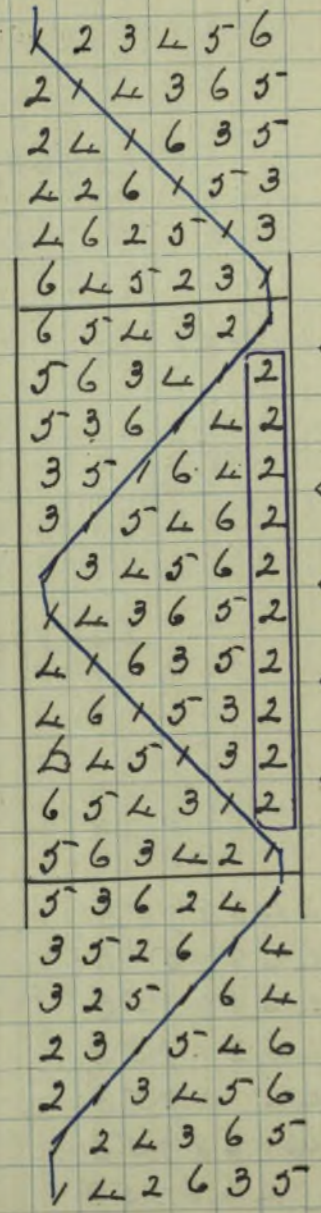 1 2 3 4 5 6
2 1 4 3 6 5
2 4 1 6 3 5
4 2 6 1 5 3
4 6 2 5 1 3
6 4 5 2 3 1
6 5 4 3 2 1
5 6 3 4 1 2
5 3 6 1 4 2
3 5 1 6 4 2
3 1 5 4 6 2
1 3 4 5 6 2
1 4 3 6 5 2
4 1 6 3 5 2
4 6 1 5 3 2
6 4 5 1 3 2
6 5 4 3 1 2
5 6 3 4 2 1
5 3 6 2 4 1
3 5 2 6 1 4
3 2 5 1 6 4
2 3 1 5 4 6
2 1 3 4 5 6
1 2 4 3 6 5
1 4 2 6 3 5